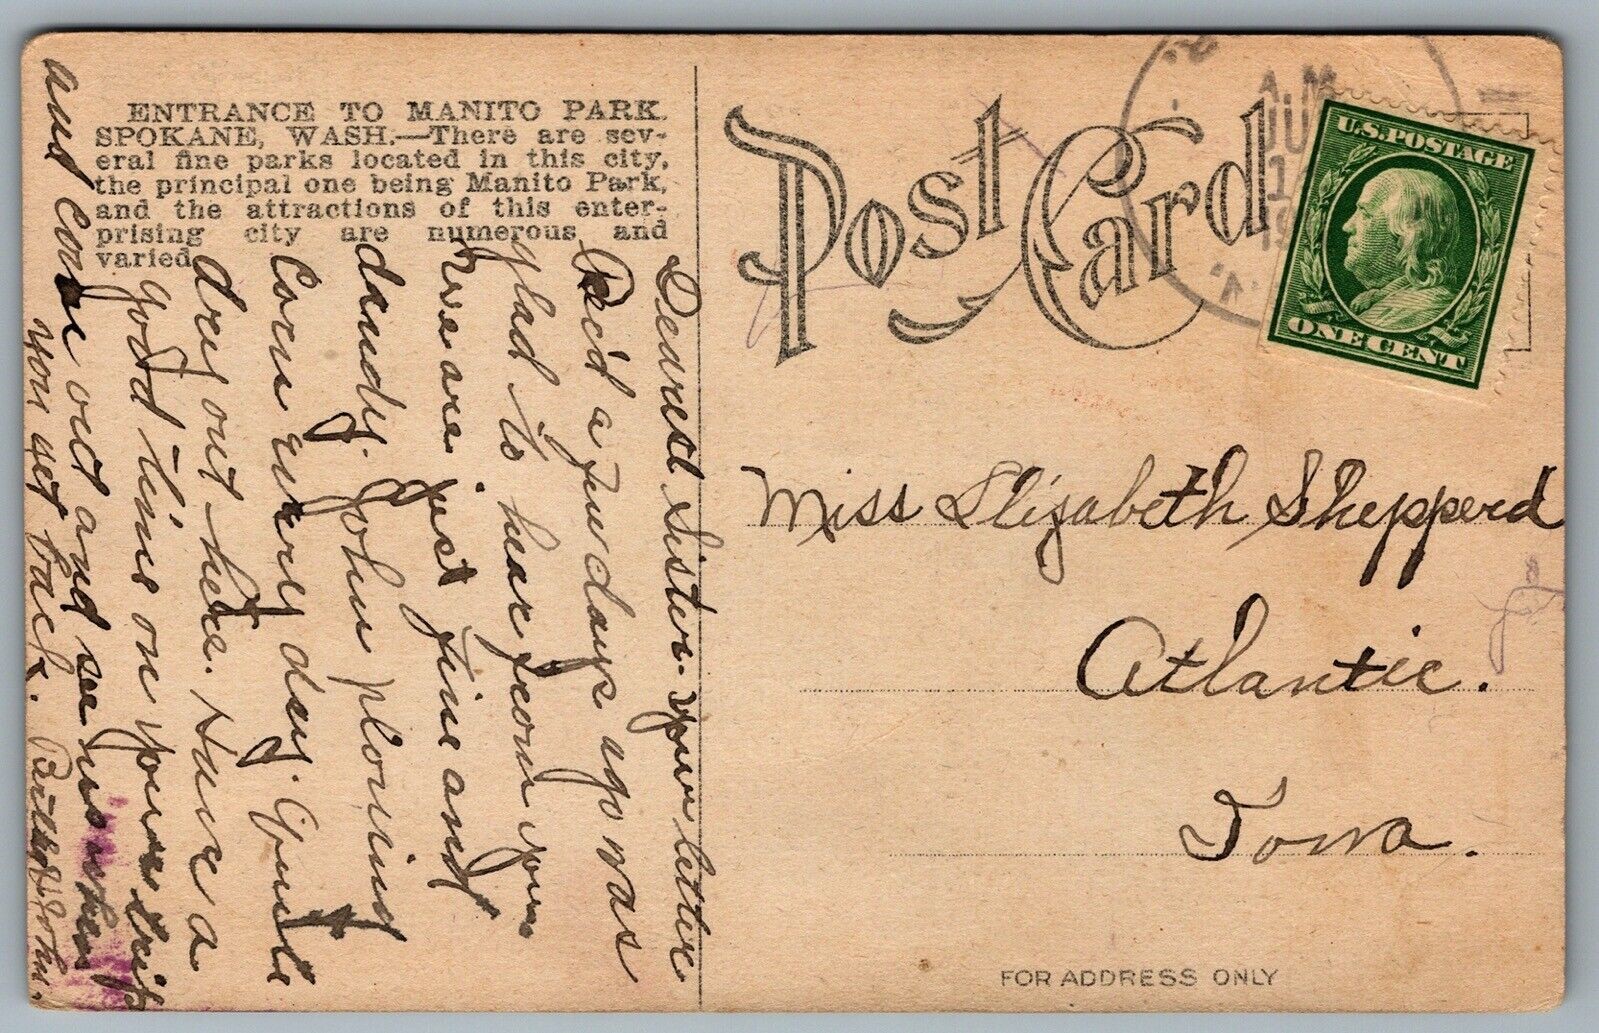 ENTRANCE TO MANITO PARK,
SPOKANE, WASH.—There are sev-
eral fine parks located in this city,
the principal one being Manito Park,
and the attractions of this enter-
prising city are numerous and
varied.
Dearest Sister. Your letter
Rec'd a few days ago was
glad to hear from you
We are just fine and
dandy. John plowing
Corn every day. Quite
dry out here. Have a
good time on your trip
and come out and see us when
you get back. John.
Post Card
A.M.
U.S. POSTAGE
ONE CENT
Miss Elizabeth Shepperd
Atlantic.
Iowa.
FOR ADDRESS ONLY